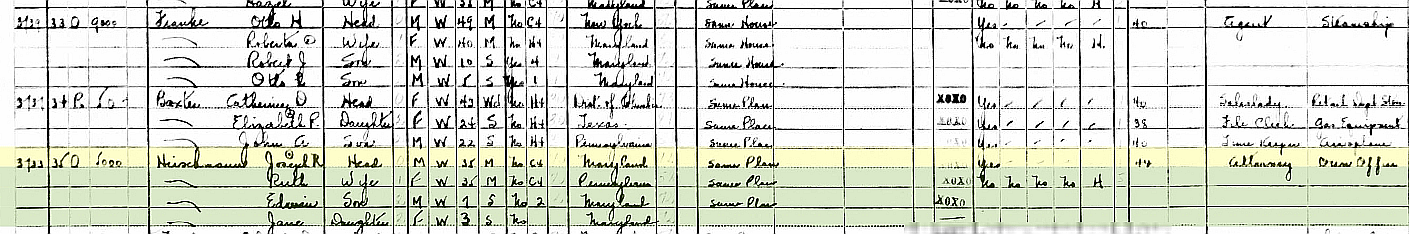 Wife F W M No C4 Maryland Same Place No No No No H
33 O 9000 Franke Otto H Head M W 49 M No C4 New York Same House Yes 40 Agent Steamship
Roberta Wife F W 40 M No H4 Maryland Same House No No No No H
Robert J Son M W 10 S Yes 4 Maryland Same House
Otto Son M W 5 S Yes 1 Maryland Same House
34 R Baxter Catherine D Head F W 43 Wd No H4 Dist. of Columbia Same Place XOXO Yes 40 Saleslady Retail Dept Store
Elizabeth P. Daughter F W 24 S No H4 Texas Same Place XOXO Yes 38 File Clerk Gas Equipment
John Son M W 22 S No H4 Pennsylvania Same Place Yes 40 Time Keeper
35 O 5000 Hirschmann Joseph R Head M W 35 M No C4 Maryland Same Place Yes 44 Attorney Own Office
Ruth Wife F W 35 M No C4 Pennsylvania Same Place XOXO No No No No H
Edwin Son M W 7 S No 2 Maryland Same Place XOXO
Jane Daughter F W 3 S No Maryland